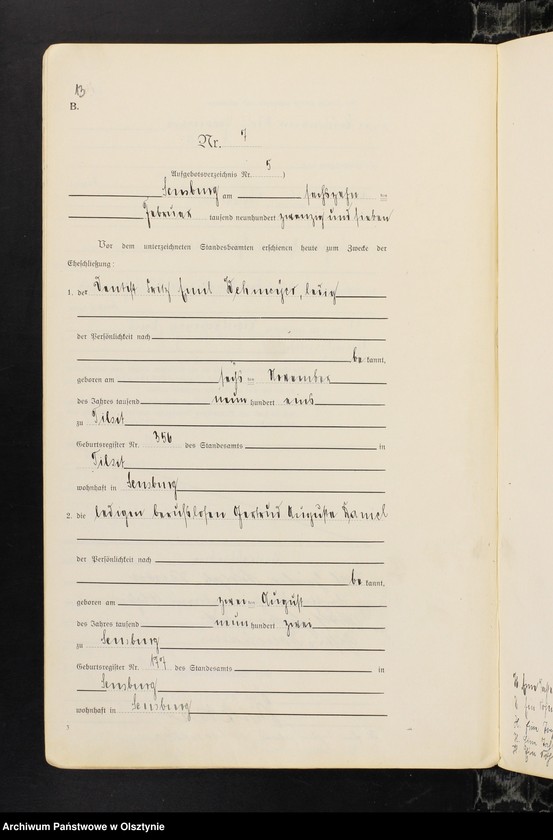 13
B.
Nr. 7
Aufgebotsverzeichnis Nr. 5 )
Sensburg am sechszehn ten
Februar tausend neunhundert zwanzig und sieben
Vor dem unterzeichneten Standesbeamten erschienen heute zum Zwecke der
Eheschließung:
1. der Dentist Fritz Emil ledig
der Persönlichkeit nach
be kannt,
geboren am sechs ten November
des Jahres tausend neun hundert eins
zu Tilsit
Geburtsregister Nr. 356 des Standesamts in
Tilsit
wohnhaft in Sensburg
2. die ledigen berufslosen Gertrud Auguste
der Persönlichkeit nach
be kannt,
geboren am zwei ten August
des Jahres tausend neun hundert zwei
zu Sensburg
Geburtsregister Nr. 177 des Standesamts in
Sensburg
wohnhaft in Sensburg
Archiwum Państwowe w Olsztynie